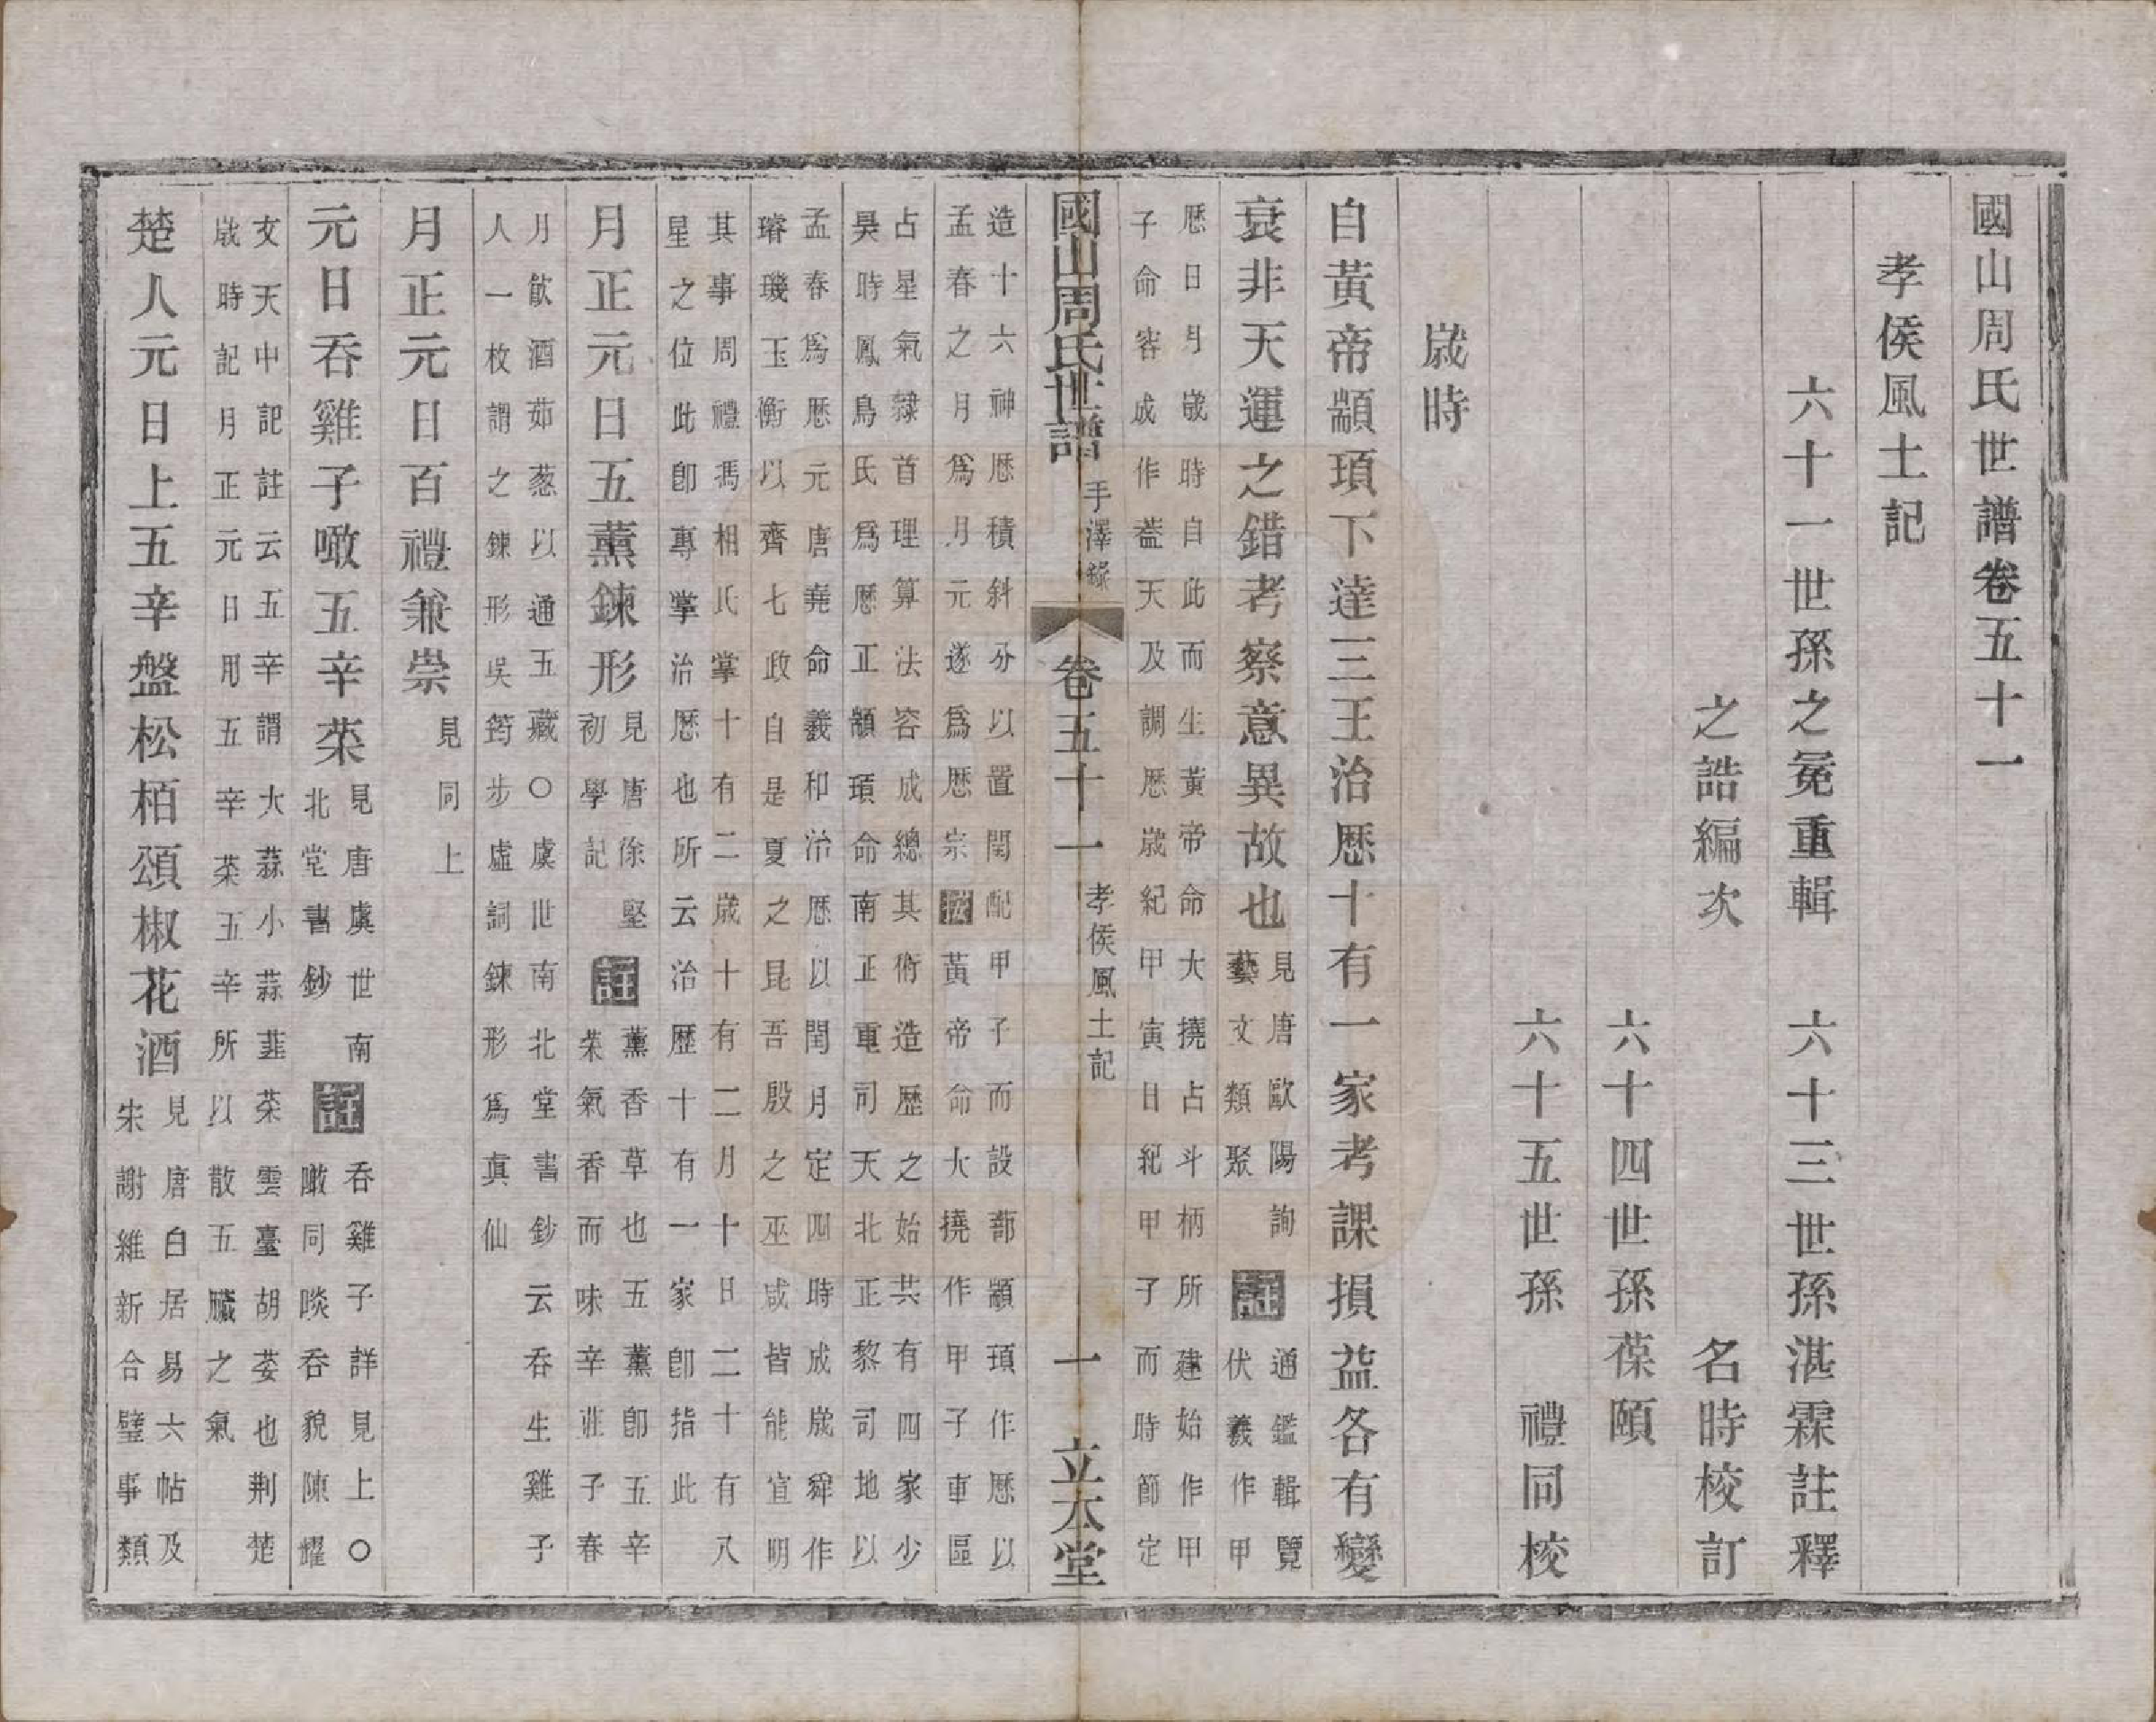 國山周氏世譜卷五十一
孝侯風土記
六十一世孫之冕重輯
六十三世孫湛霖註釋
之誥編次
名時校訂
六十四世孫葆頤
六十五世孫 禮同校
歲時
自黃帝顓頊下達三王治厯十有一家考課損益各有變
衰非天運之錯考察意異故也
見唐歐陽詢
藝文類聚
註
通鑑輯覽
伏羲作甲
厯日月歲時自此而生黃帝命大撓占斗柄所建始作甲
子命容成作蓋天及調厯歲紀甲寅日紀甲子而時節定
國山周氏世譜 手澤錄 卷五十一 孝侯風土記 一 立本堂
造十六神厯積斜分以置閏配甲子而設蔀顓頊作厯以
孟春之月爲月元遂爲厯宗按黃帝命大撓作甲子車區
占星氣隸首理算法容成總其術造歷之始共有四家少
昊時鳳鳥氏爲厯正顓頊命南正重司天北正黎司地以
孟春爲厯元唐堯命羲和治厯以閏月定四時成歲舜作
璿璣玉衡以齊七政自是夏之昆吾殷之巫咸皆能宣明
其事周禮馮相氏掌十有二歲十有二月十日二十有八
星之位此卽專掌治厯也所云治歷十有一家卽指此
月正元日五薰鍊形
見唐徐堅
初學記
註
薰香草也五薰卽五辛
菜氣香而味辛莊子春
月飲酒茹葱以通五藏○虞世南北堂書鈔云吞生雞子
人一枚謂之鍊形吳筠步虛詞鍊形爲眞仙
月正元日百禮兼崇
見同上
元日吞雞子噉五辛菜
見唐虞世南
北堂書鈔
註
吞雞子詳見上○
噉同啖吞貌陳耀
文天中記註云五辛謂大蒜小蒜韭菜雲臺胡荽也荆楚
歲時記月正元日用五辛菜五辛所以散五臟之氣
楚人元日上五辛盤松栢頌椒花酒
見唐白居易六帖及
宋謝維新合璧事類